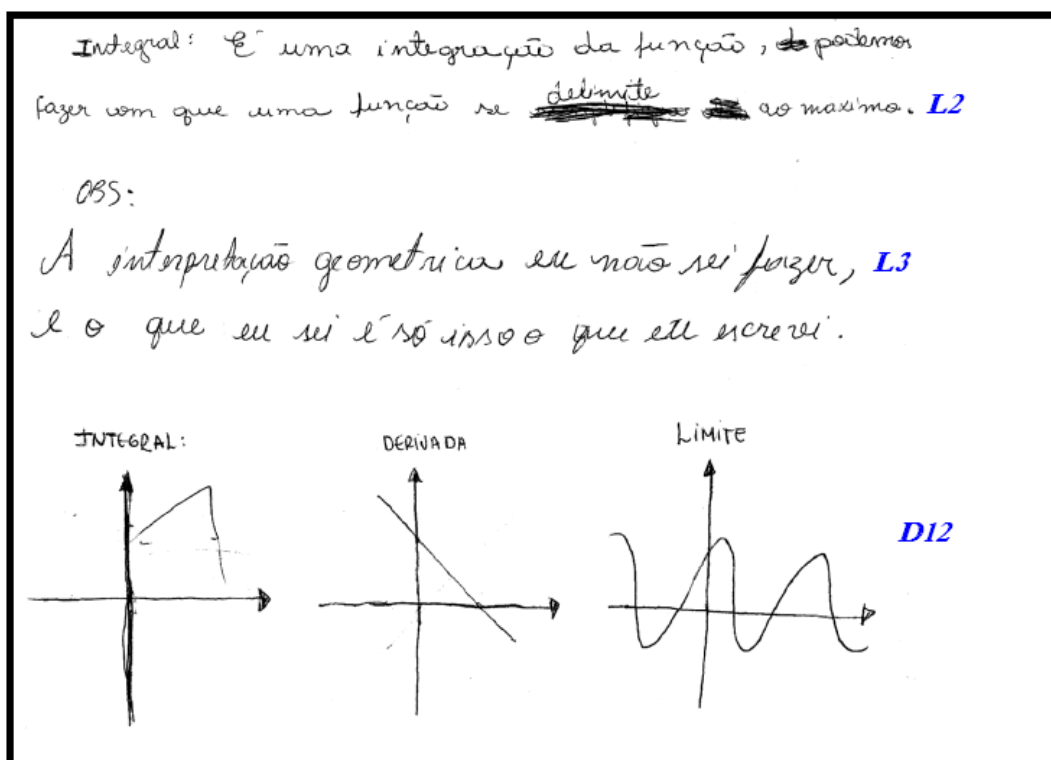 Integral: É uma integração da função, podemos
fazer com que uma função se delimite ao maximo. L2
OBS:
A interpretação geometrica eu não sei fazer, L3
e o que eu sei é só isso o que eu escrevi.
INTEGRAL: DERIVADA LIMITE
D12